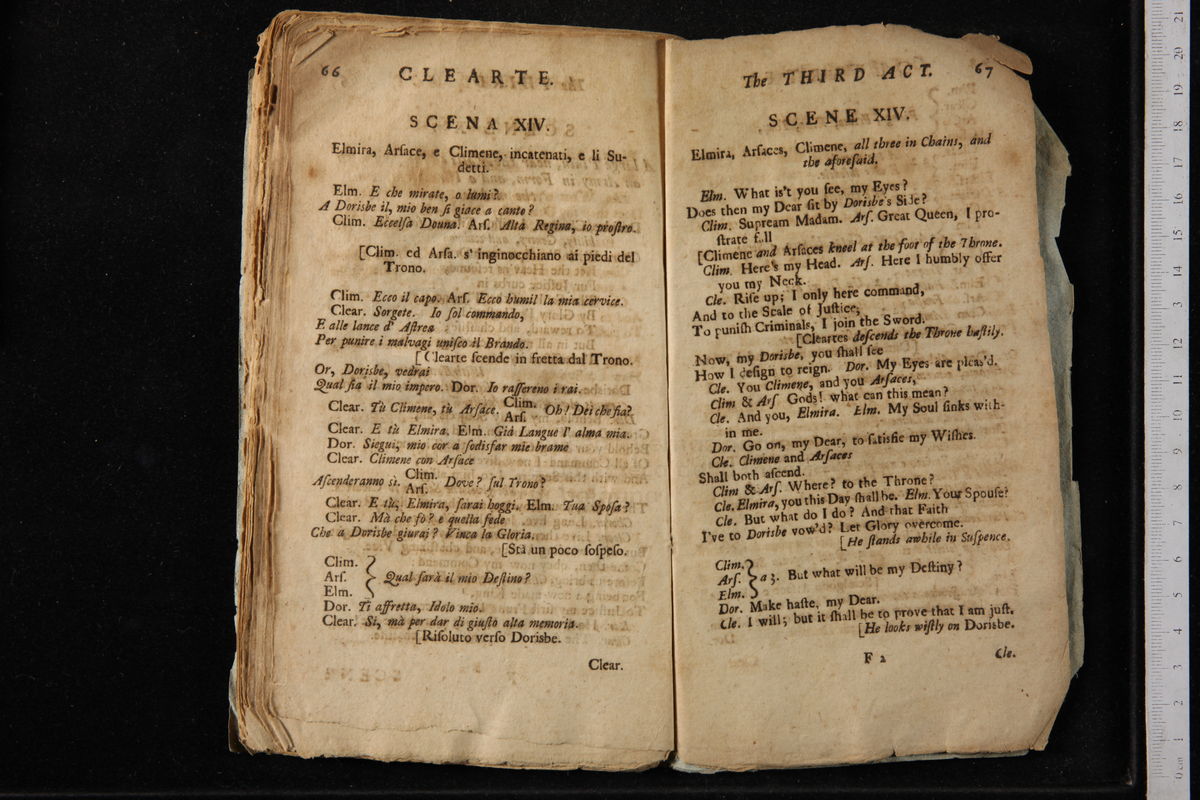 66
CLEARTE.
SCENA XIV.
Elmira, Arſace, e Climene, incatenati, e li Su-
detti.
Elm. E che mirate, o lumi?
A Dorisbe il, mio ben ſi giace a canto?
Clim. Eccelſa Donna. Arſ. Alta Regina, io proſtro.
[Clim. ed Arſa. s' inginocchiano ai piedi del
Trono.
Clim. Ecco il capo. Arſ. Ecco humil la mia cervice.
Clear. Sorgete. Io ſol commando,
E alle lance d' Aſtrea
Per punire i malvagi uniſco il Brando.
[Clearte ſcende in fretta dal Trono.
Or, Dorisbe, vedrai
Qual ſia il mio impero. Dor. Io raſſereno i rai.
Clear. Tù Climene, tù Arſace. Clim. Arſ. Oh! Dei che fia?
Clear. E tù Elmira. Elm. Già Langue l' alma mia.
Dor. Siegui, mio cor a ſodisfar mie brame
Clear. Climene con Arſace
Aſcenderanno sì. Clim. Arſ. Dove? ſul Trono?
Clear. E tù, Elmira, ſarai hoggi. Elm. Tua Spoſa?
Clear. Mà che fò? e quella fede
Che a Dorisbe giurai? Vinca la Gloria.
[Stà un poco ſoſpeſo.
Clim.
Arſ. } Qual ſarà il mio Deſtino?
Elm.
Dor. Ti affretta, Idolo mio.
Clear. Si, mà per dar di giuſto alta memoria.
[Riſoluto verſo Dorisbe.
Clear.
The THIRD ACT. 67
SCENE XIV.
Elmira, Arſaces, Climene, all three in Chains, and
the aforeſaid.
Elm. What is't you ſee, my Eyes?
Does then my Dear ſit by Dorisbe's Side?
Clim. Supream Madam. Arſ. Great Queen, I pro-
ſtrate fall
[Climene and Arſaces kneel at the foot of the Throne.
Clim. Here's my Head. Arſ. Here I humbly offer
you my Neck.
Cle. Riſe up; I only here command,
And to the Scale of Juſtice,
To puniſh Criminals, I join the Sword.
[Cleartes deſcends the Throne haſtily.
Now, my Dorisbe, you ſhall ſee
How I deſign to reign. Dor. My Eyes are pleas'd.
Cle. You Climene, and you Arſaces,
Clim & Arſ Gods! what can this mean?
Cle. And you, Elmira. Elm. My Soul ſinks with-
in me.
Dor. Go on, my Dear, to ſatisfie my Wiſhes.
Cle. Climene and Arſaces
Shall both aſcend.
Clim & Arſ. Where? to the Throne?
Cle. Elmira, you this Day ſhall be. Elm. Your Spouſe?
Cle. But what do I do? And that Faith
I've to Dorisbe vow'd? Let Glory overcome.
[He ſtands awhile in Suſpence.
Clim.
Arſ. } a 3. But what will be my Deſtiny?
Elm.
Dor. Make haſte, my Dear.
Cle. I will; but it ſhall be to prove that I am juſt.
[He looks wiſtly on Dorisbe.
F 2
Cle.